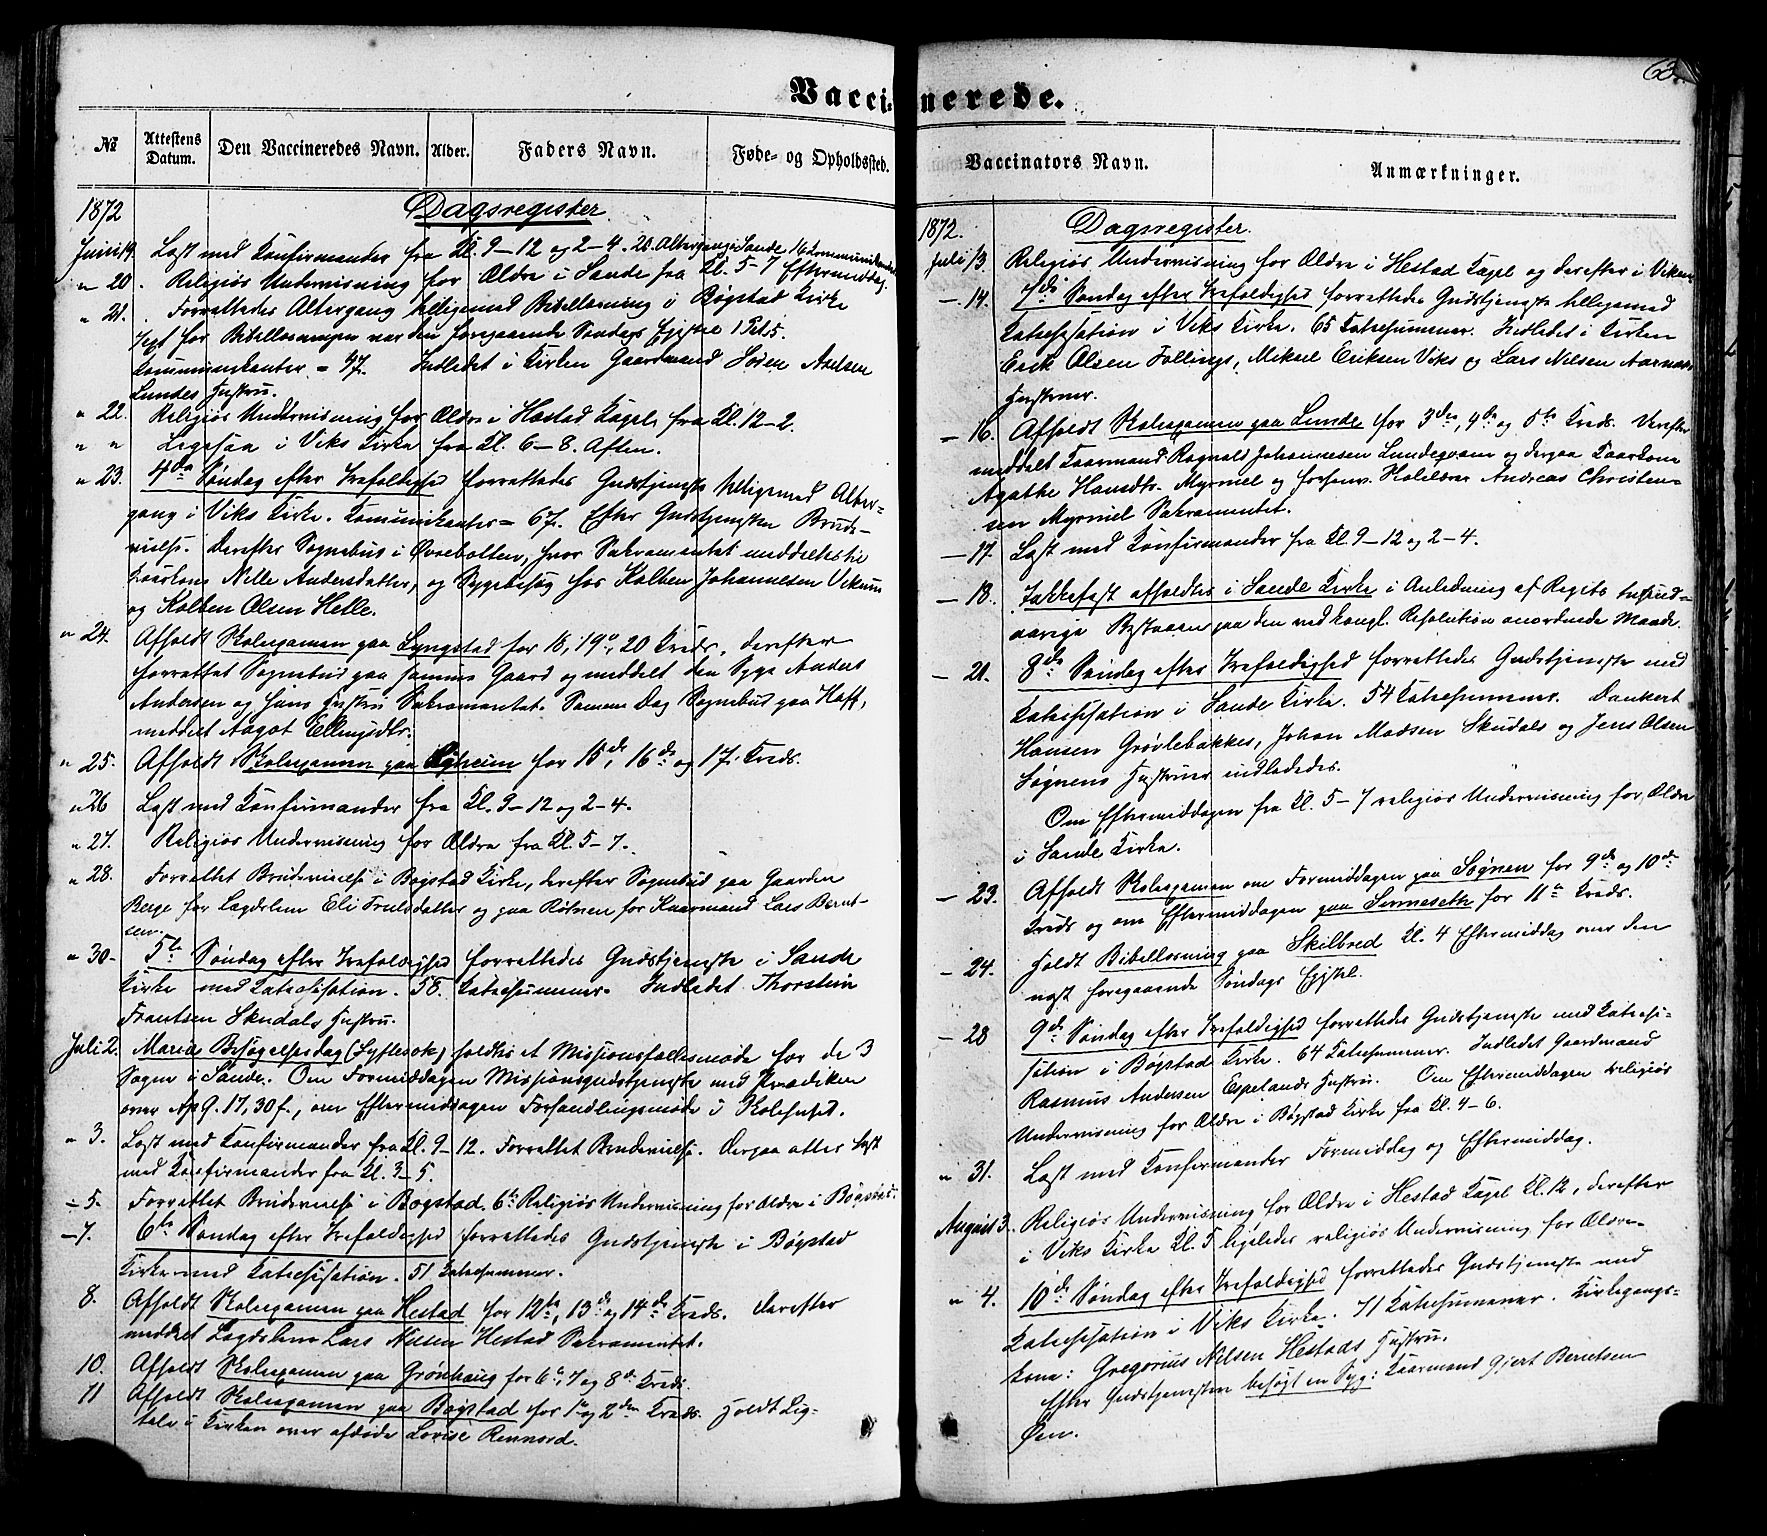 Vaccinerede.
63.
№
Attestens Datum.
Den Vaccineredes Navn.
Alder.
Faders Navn.
Føde- og Opholdssted.
Vaccinators Navn.
Anmærkninger.
1872 Dagsregister
Juni 19. Læst med Konfirmander fra Kl. 9-12 og 2-4. 20. Altergang i Sande 16 Kommunikanter
" 20. Religiøs Undervisning for Ældre i Sande fra Kl. 5-7 Eftermiddag.
" 21. Forrettedes Altergang tilligemed Bibellæsning i Bøgstad Kirke
Text for Bibellæsningen var den foregaaende Søndags Epistel 1 Pet. 5.
Kommunikanter = 47. Indledet i Kirken Gaardmand Søren Axelsen
Lundes Hustru.
" 22. Religiøs Undervisning for Ældre i Hestad Kapel fra Kl. 12-2.
" " Ligesaa i Viks Kirke fra Kl. 6-8. Aften.
" 23. 4de Søndag efter Trefoldighed forrettedes Gudstjeneste tilligemed Alter-
gang i Viks Kirke. Kommunikanter = 67. Efter Gudstjenesten Brude-
vielse. Derefter Sognebud i Øvrebotten, hvor Sakramentet meddeeltes til
Kaarkone Nille Andersdatter, og Sygebesøg hos Kolben Johannesen Vikum
og Kolben Olsen Helle.
" 24. Afholdt Skoleexamen paa Lyngstad for 18, 19 og 20 Kreds, derefter
forrettet Sognebud paa samme Gaard og meddelt den Syge Anders
Andersen og hans Hustru Sakramentet. Samme Dag Sognebud paa Hoff,
meddelt Aagot Ellingsdtr.
" 25. Afholdt Skoleexamen paa heim for 15de, 16de og 17. Kreds.
" 26 Læst med Konfirmander fra Kl. 9-12 og 2-4.
" 27. Religiøs Undervisning for Ældre fra Kl. 5-7.
" 28. Forrettet Brudevielse i Bøgstad Kirke, derefter Sognebud paa Gaarden
Berge for Lægdslem Eli Trulsdatter og paa for Kaarmand Lars Bernt-
sen.
" 30- 5te Søndag efter Trefoldighed forrettedes Gudstjeneste i Sande
Kirke med Katechisation. 58. Katechumener. Indledet Thorstein
Frantsen Skudals Hustru.
Juli 2. Mariæ Besøgelsesdag (Syftesok) holdtes et Missionsfællesmøde for de 3
Sogne i Sande. Om Formiddagen Missionsgudstjeneste med Prædiken
over Ap. G. 17, 30 f., om Eftermiddagen Forhandlingsmøde i Skolehuset.
" 3. Læst med Konfirmander fra Kl. 9-12. Forrettet Brudevielse. Derpaa atter læst
med Konfirmander fra Kl. 3-5.
- 5. Forrettet Brudevielse i Bøgstad. 6te Religiøs Undervisning for Ældre i Bøgstad.
- 7. 6te Søndag efter Trefoldighed forrettedes Gudstjeneste i Bøgstad
Kirke med Katechisation. 51 Katechumener.
8. Afholdt Skoleexamen paa Hestad for 12te, 13de og 14de Kreds. Derefter
meddelt Lægdslem Lars Nilsen Hestad Sakramentet.
10. Afholdt Skoleexamen paa Grønhaug for 6te, 7 og 8de Kreds.
11 Afholdt Skoleexamen paa Bøgstad for 1ste og 2den Kreds. Holdt Lig-
tale i Kirken over afdøde Lovise Rennord.
1872. Dagsregister.
Juli 13. Religiøs Undervisning for Ældre i Hestad Kapel og derefter i Viken
- 14. 7de Søndag efter Trefoldighed forrettedes Gudstjeneste tilligemed
Katechisation i Viks Kirke. 65 Katechumener. Indledet i Kirken
Erik Olsen Follings, Mikael Eriksen Viks og Lars Nilsen Aarnæs
Hustruer.
- 16. Afholdt Skoleexamen paa Lunde for 3die, 4de og 5te Kreds. Derefter
meddelt Kaarmand Ragnald Johannesen Lundegven og derpaa Kaarkone
Agathe Hansdtr. Myrmel og forhenv. Skolelærer Andreas Christen-
sen Myrmel Sakramentet.
- 17. Læst med Konfirmander fra Kl. 9-12 og 2-4.
- 18. Takkefest afholdtes i Sande Kirke i Anledning af Rigets tusind-
aarige Bestaaen paa den ved kongl. Resolution anordnede Maade.
- 21. 8de Søndag efter Trefoldighed forrettedes Gudstjeneste med
Katechisation i Sande Kirke. 54 Katechumener. Dankert
Hansen Grøvlebakkes, Johan Madsen Skudals og Jens Olsen
Søgnens Hustruer indlededes.
Om Eftermiddagen fra Kl. 5-7 religiøs Undervisning for Ældre
i Sande Kirke.
- 23. Afholdt Skoleexamen om Formiddagen paa Søgnen for 9de og 10de
Kreds og om Eftermiddagen paa Sivmeseth for 11te Kreds.
- 24. Holdt Bibellæsning paa Skilbred Kl. 4 Eftermiddag over den
næst foregaaende Søndags Epistel.
- 28 9de Søndag efter Trefoldighed forrettedes Gudstjeneste med Katechi-
sation i Bøgstad Kirke. 64 Katechumener. Indledet Gaardmand
Rasmus Andersen Espelands Hustru. Om Eftermiddagen religiøs
Undervisning for Ældre i Bøgstad Kirke fra Kl. 4-6.
" 31. Læst med Konfirmander Formiddag og Eftermiddag.
August 3. Religiøs Undervisning for Ældre i Hestad Kapel Kl. 12, derefter
i Viks Kirke Kl. 5 ligeledes religiøs Undervisning for Ældre.
" 4. 10de Søndag efter Trefoldighed forrettedes Gudstjeneste med
Katechisation i Viks Kirke. 71 Katechumener. Kirkegangs-
kone: Gregorius Nilsen Hestads Hustru.
Efter Gudstjenesten besøgt en Syg: Kaarmand Gjert Berntsen
Øen.